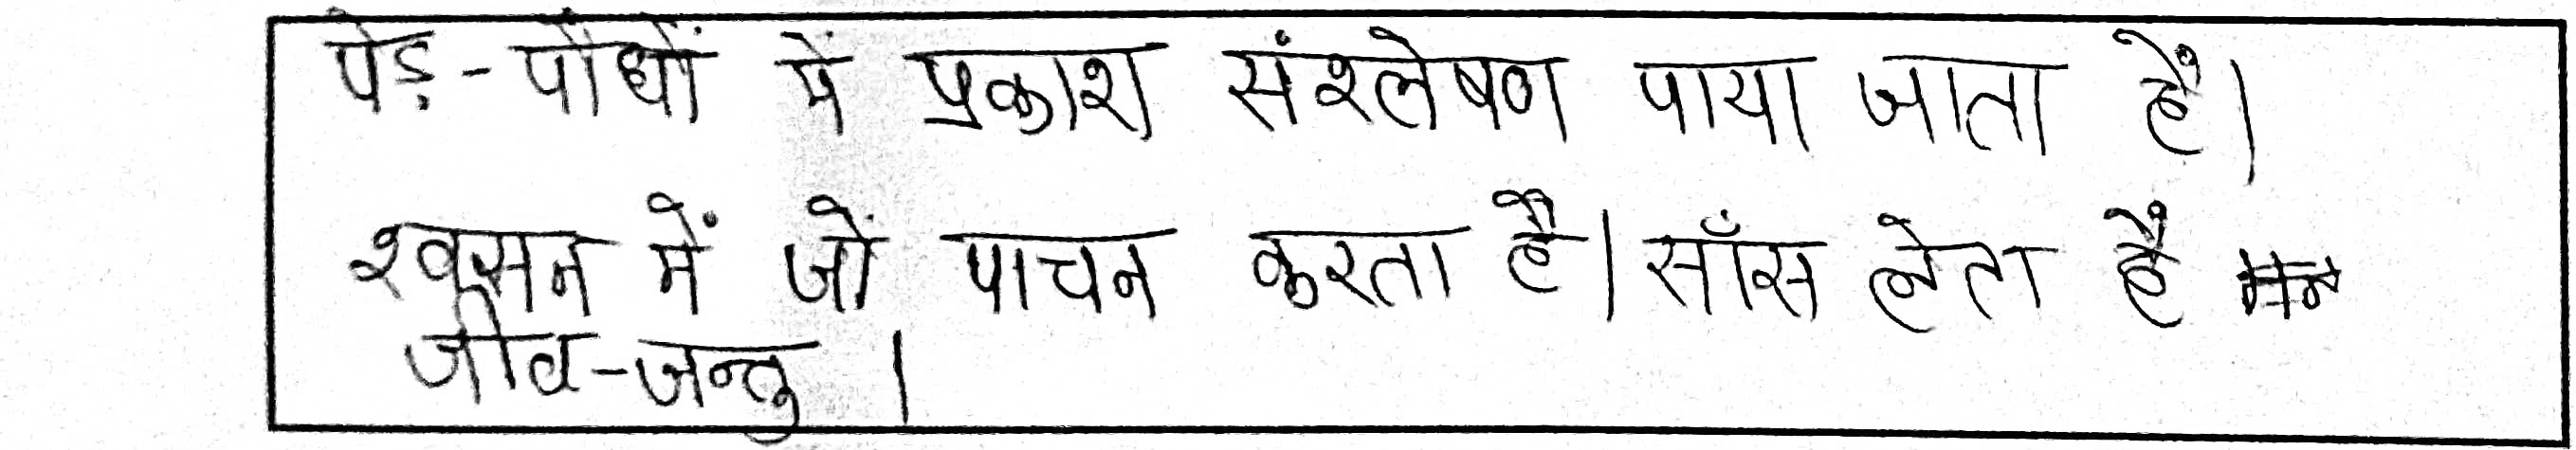 पेड़-पौधों में प्रकाश संश्लेषण पाया जाता हैं।
श्वसन में जों पाचन करता है। साँस लेता है
जीव-जन्तु ।